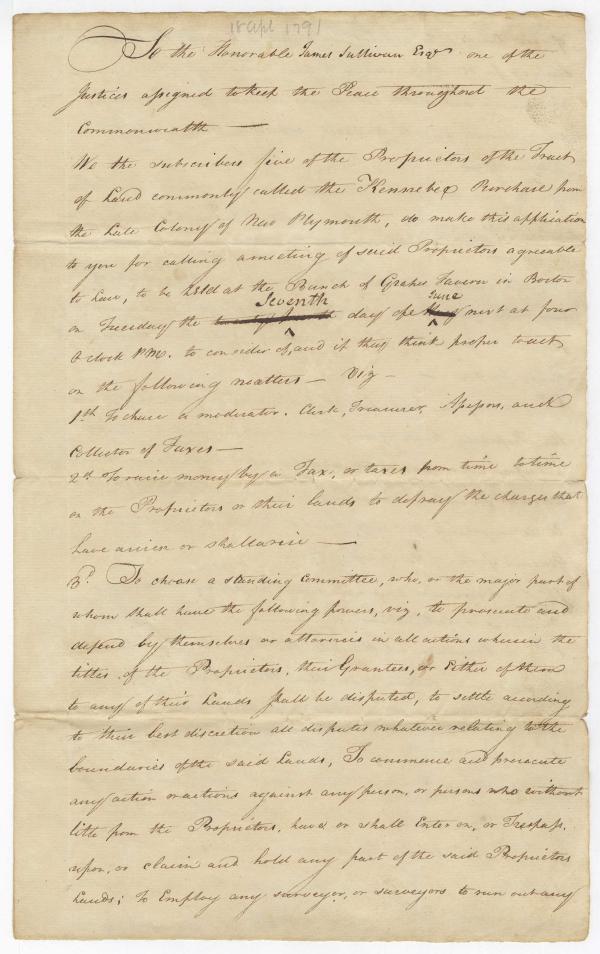 18 Apl 1791
To the Honorable James Sullivan Esqr one of the
Justices assigned to keep the Peace throughout the
Commonwealth —
We the subscribers five of the Proprietors of the Tract
of Land commonly called the Kennebeq Purchase from
the Late Colony of New Plymouth, do make this application
to you for calling a meeting of said Proprietors agreable
to Law, to be held at the Bunch of Grapes Tavern in Boston
Seventh June
on Tuesday the twenty fourth day of May next at four
O Clock PM. to consider of, and if they think proper to act
on the following matters — Viz —
1.th To chuse a moderator. Clerk, Treasurer, Assessors, and
Collector of Taxes —
2.d To raise money by a Tax, or taxes from time to time
on the Proprietors or their lands to defray the charges that
have arisen or shall arise —
3.d To choose a standing Committee, who, or the major part of
whom shall have the following powers, viz, to prosecute and
defend by themselves or attornies in all actions wherein the
titles of the Proprietors, their Grantees, or Either of them
to any of their Lands shall be disputed, to settle according
to their best discretion all disputes whatever relating to the
boundaries of the said Lands, To commence and prosecute
any action or actions against any person, or persons who without
title from the Proprietors, have or shall Enter on, or Trespass,
upon, or claim and hold any part of the said Proprietors
Lands; to Employ any surveyor, or surveyors to run out any